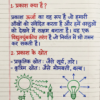 1. प्रकाश क्या है ?
प्रकाश ऊर्जा का वह रूप है जो हमारी
आँखों को संवेदित करता है और हमें वस्तुओं
को देखने में सक्षम बनाता है। यह एक
विद्युतचुंबकीय तरंग है जो निर्वात में भी चल
सकती है।
2. प्रकाश के स्रोत
- प्राकृतिक स्रोत: जैसे सूर्य, तारे।
- कृत्रिम स्रोत: जैसे मोमबत्ती, बल्ब।